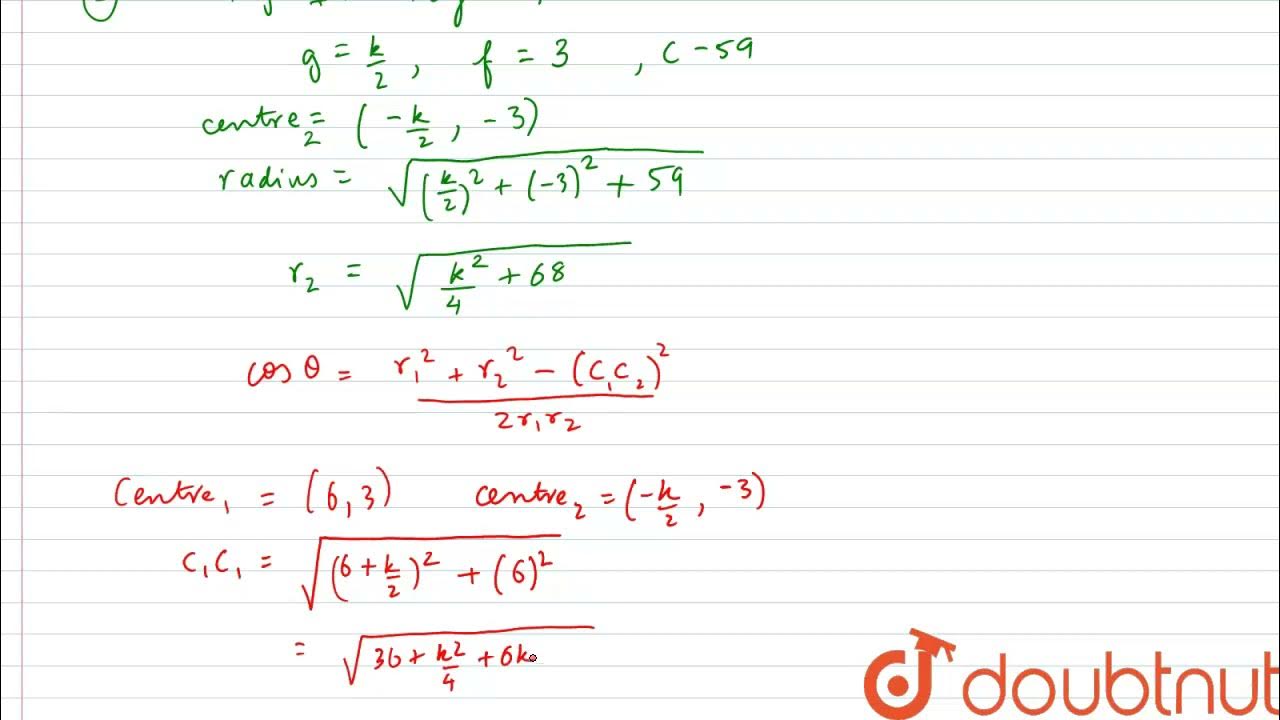 g = k/2 , f = 3 , C - 59
centre₂ = (-k/2 , -3)
radius = √((k/2)² + (-3)² + 59)
r₂ = √(k²/4 + 68)
cos θ = (r₁² + r₂² - (C₁C₂)²)/(2r₁r₂)
Centre₁ = (6,3) centre₂ = (-k/2 , -3)
C₁C₁ = √((6 + k/2)² + (6)²)
= √(36 + k²/4 + 6k
doubtnut